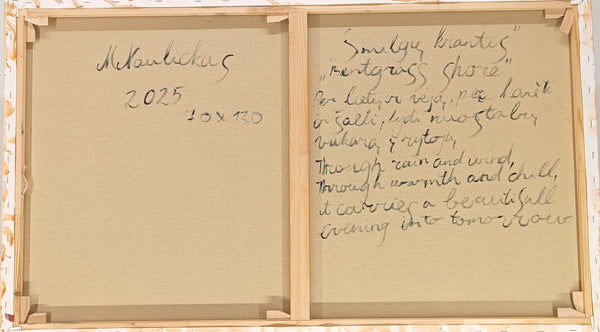 M Kaulickas
2025
70 x 120
"Smilgų krantas"
„Bentgrass shore"
Per lietų ir vėją, per karštį
ir šaltį, lydi nuostabų
vakarą į rytojų
Through rain and wind,
Through warmth and chill,
it carries a beautifull
evening into tomorrow